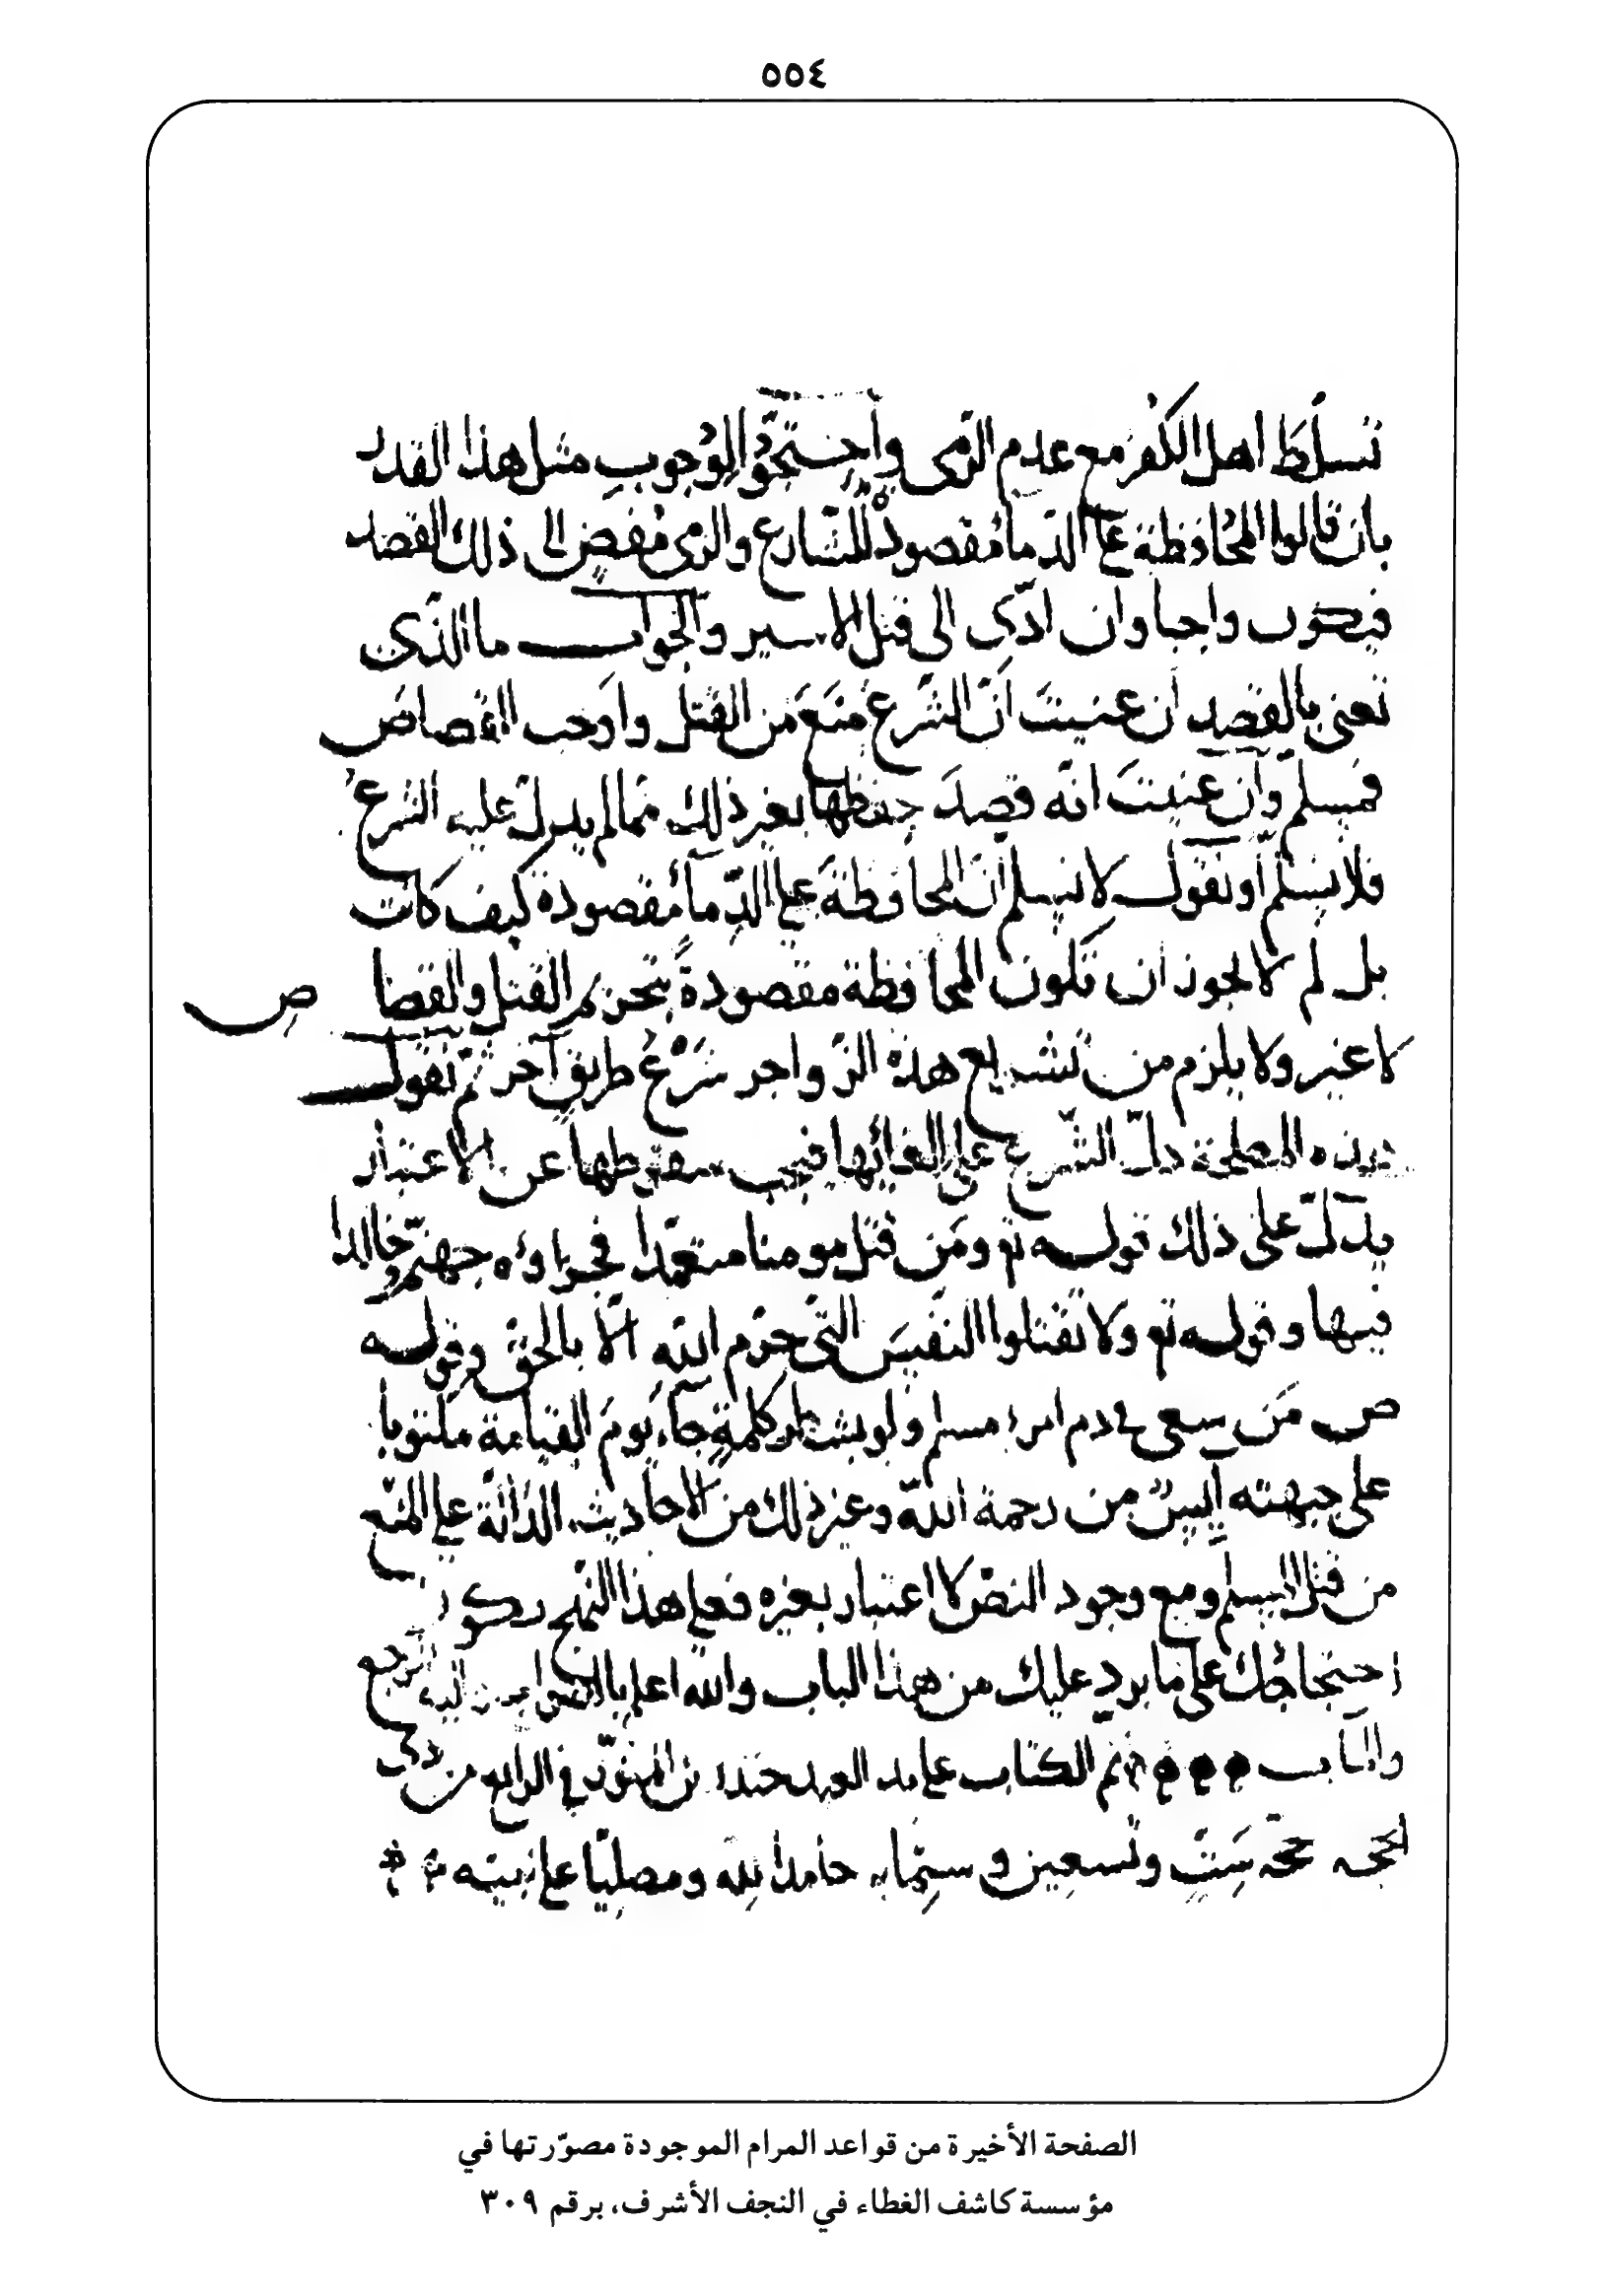 ٥٥٤
تسلّط اهل الكفر مع عدم الرّمى واحتجّوا لوُجوبِ مثل هذا القدر
بان قالوا المحُافظة على الدّما مُقصودةٌ للشّارع والرّمى مُفضٍ الى ذلك القصد
فيكون واجبا وان ادّى الى قتل الاسير والجواب ما الذّى
تعنى بالقصدِ ان عنيتَ انّ الشّرعَ منَعَ مَن القتل واوَجب القصاصَ
فمَسلّم وان عنيتَ انّه قصِدَ حفظها بغير ذلك ممّا لم يدلّ عليه الشرعُ
فلا نسُلّم او نقول لا نسلم انّ المحافظةَ على الدِّمآ مُقصودة كيف كانت
بل لم لا يجوز ان تكون المحافظة مقصودةً بتحريم القتل والقصاص
لا غير ولا يلزم من تشديع هذه الزّواجر شَرْعُ طريقٍ آخر ثمّ نقول
هذه المصلحة دلّ الشّرع على الغائها فيجب سقوطها عن الاعتبار
يدلّ على ذلك قوله تع ومَن قتل مومنا متعمّدا فجزاوُه جهنّم خالدا
فيها وقوله تع ولا تقتلوا النفسَ التّى حرّم اللّهِ الّا بالحقّ وقوله
ص مَن سعى في دم امرء مسلم ولو بشطر كلمةٍ جآء يومَ القيامة مكتوبا
على جبهته آيسٌ من رحمة اللّه وغير ذلك من الاحاديث الدّالّة على المنع
من قتل المسلم ومع وجود النصّ لا اعتبار بغيره فعلى هذا النّهج يكون
احتجاجُك على ما يرد عليك من هذا الباب والله اعلم بالصواب واليه المرجع
والمآب تم الكتاب على يد العبد في الرابع من ذى
الحجّه حجّة سَتٍّ وتسعين وستِّمايه حامدا للّهِ ومصلِيّا على نبيّه
الصفحة الأخيرة من قواعد المرام الموجودة مصوّرتها في
مؤسسة كاشف الغطاء في النجف الأشرف، برقم ٣٠٩